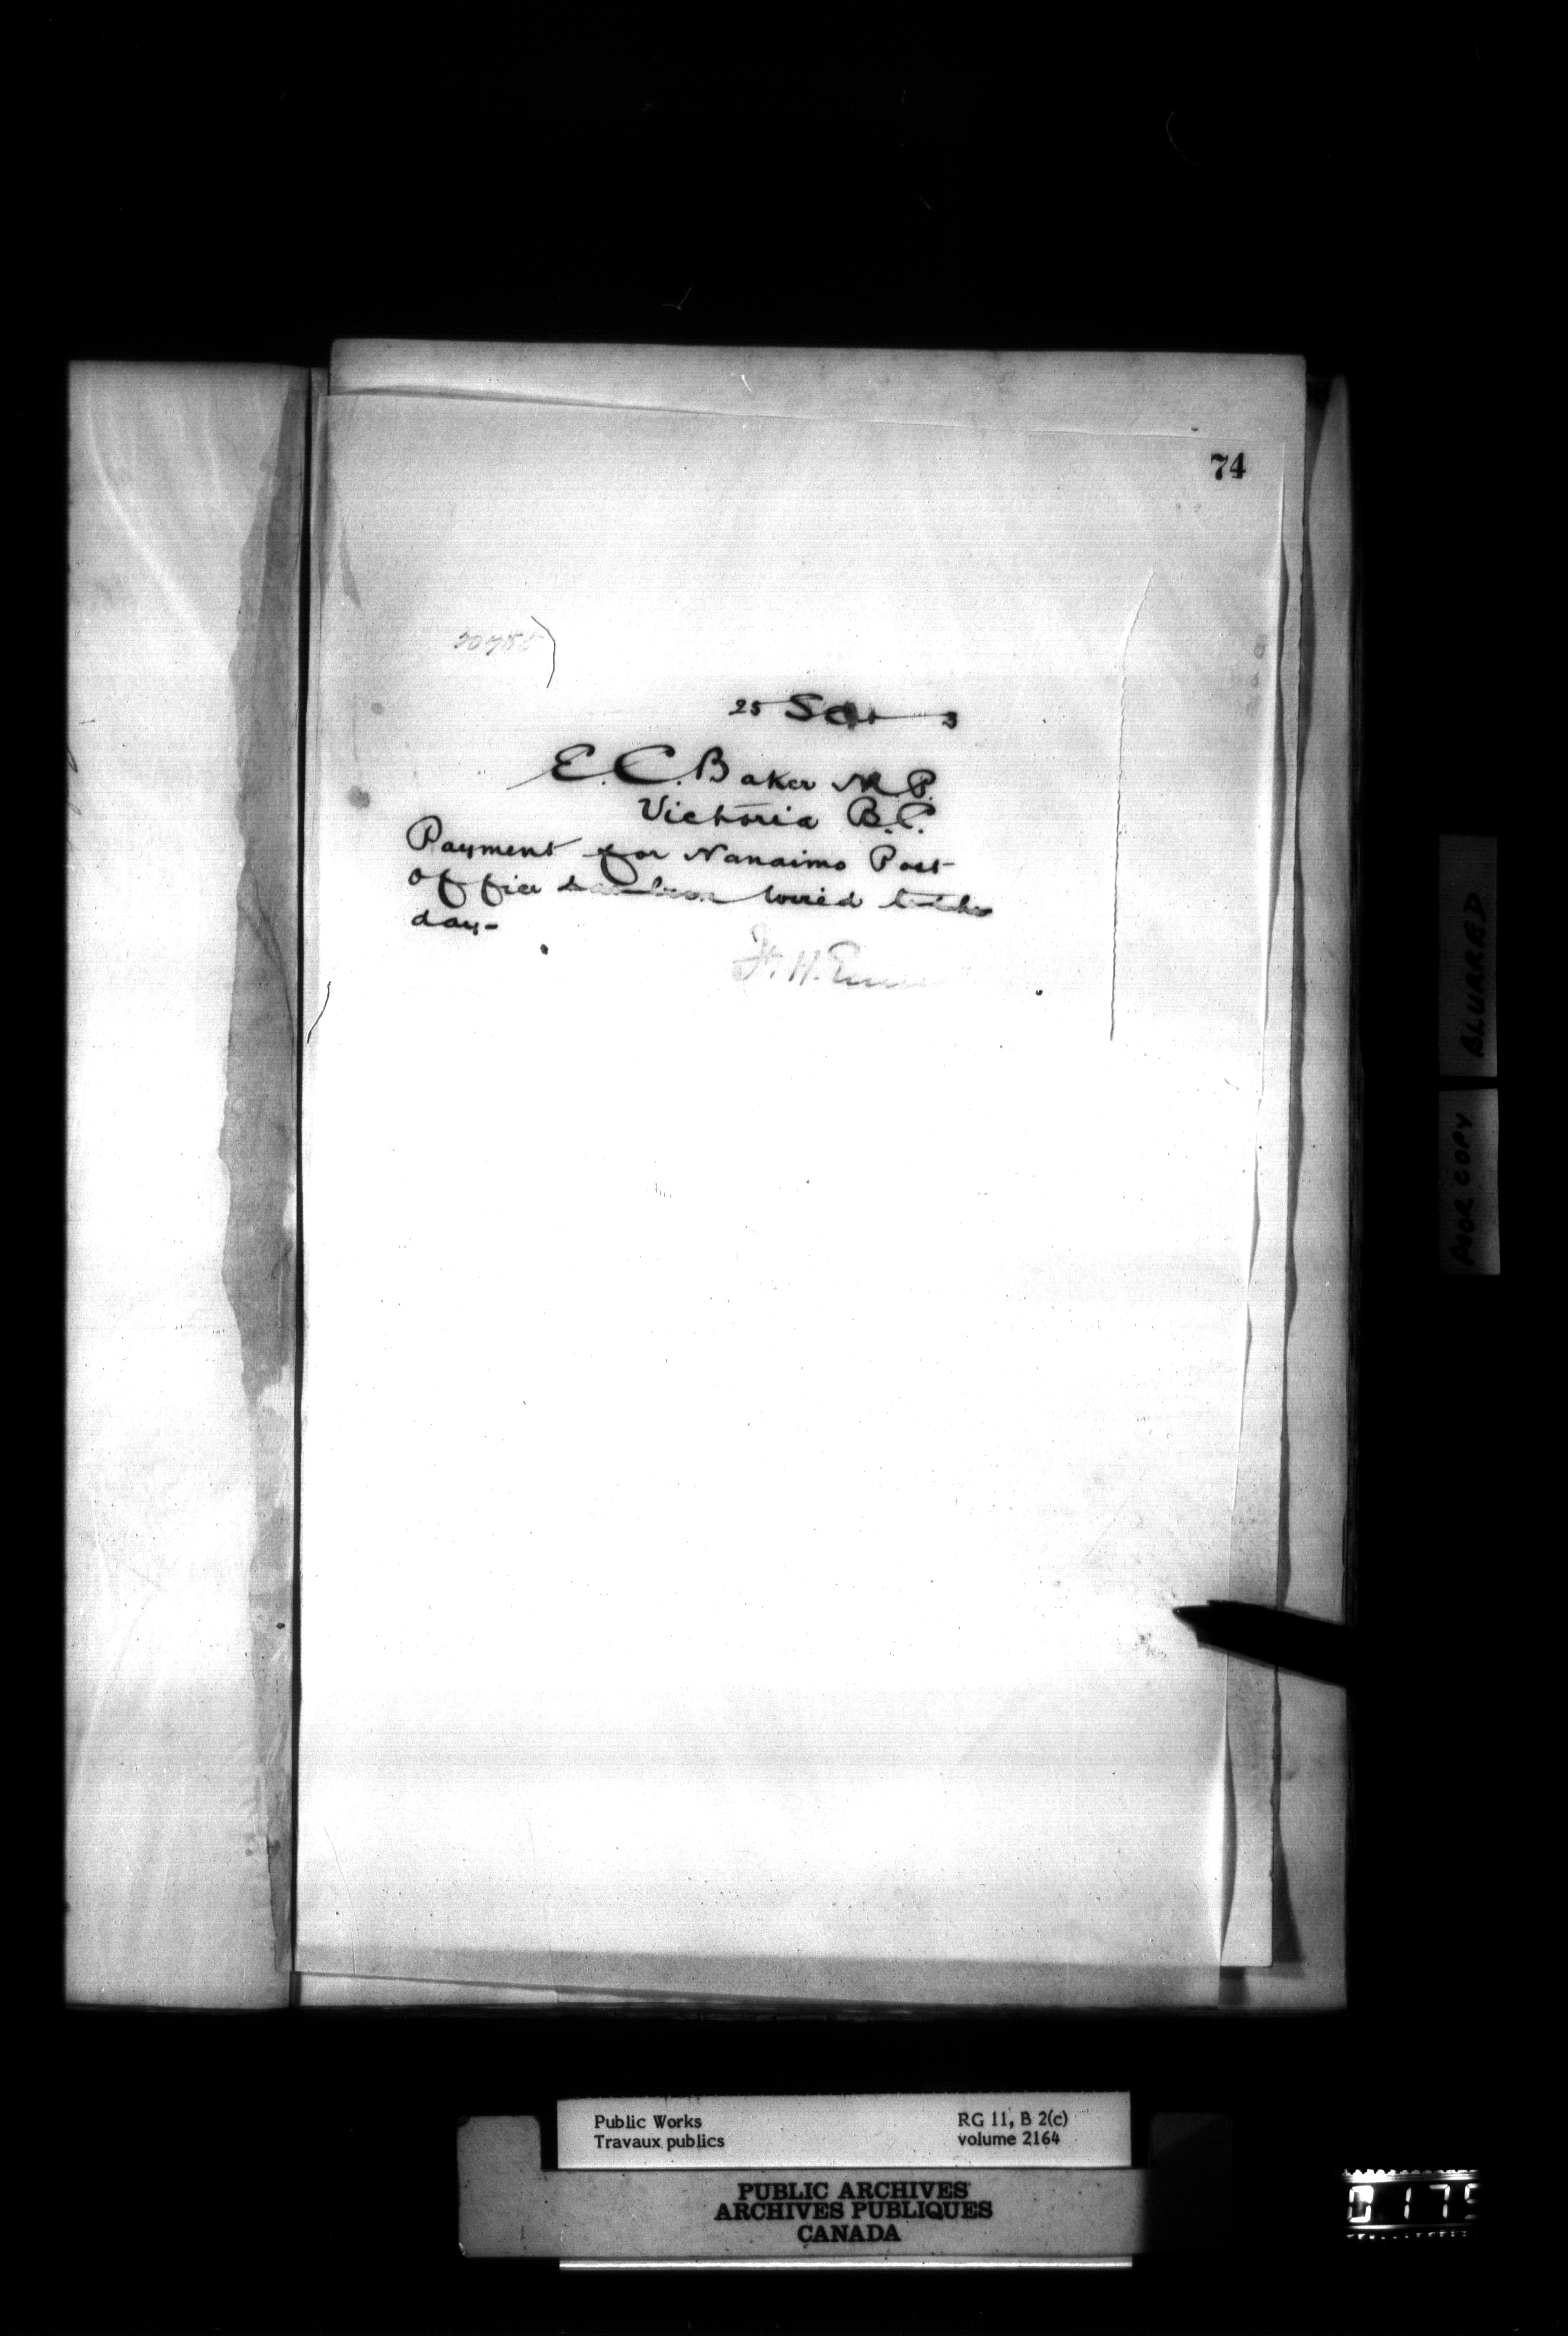 74
25 Sep 3
E. C. Baker M.P.
Victoria B.C.
Payment for Nanaimo Post
Office wired
day-
F. H. E
BLURRED
POOR COPY
Public Works
Travaux publics
RG 11, B 2(c)
volume 2164
PUBLIC ARCHIVES
ARCHIVES PUBLIQUES
CANADA
0175